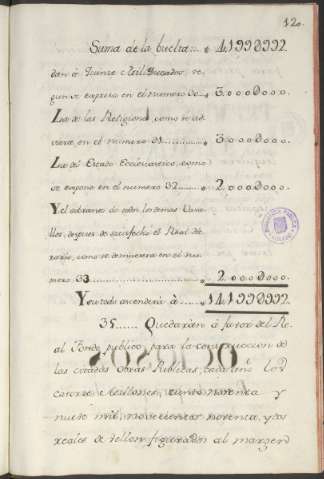 12.
Suma de la buelta 4.1998992.
dan à Quince Mil Ducados, se
gun se expresa en el numero 30 3.0000000.
Las de las Religiones, como se ad
vierte, en el numero 31 3.0000000.
Las del Estado Ecclesiastico, como
se expone en el numero 32 2.0000000.
Y el sobrante de todos los demas Vasa
llos, despues de satisfecho el Real
Erario, como se demuestra en el nu
mero 33 2.0000000.
Y su todo ascenderá à 14.1998992.
35 Quedaràn à favor del Re
al Fondo publico para la construccion de
las citadas Obras Publicas, cada año los
catorce Millones, ciento noventa y
nueve mil, novecientos noventa, y dos
reales de vellon figurados al margen